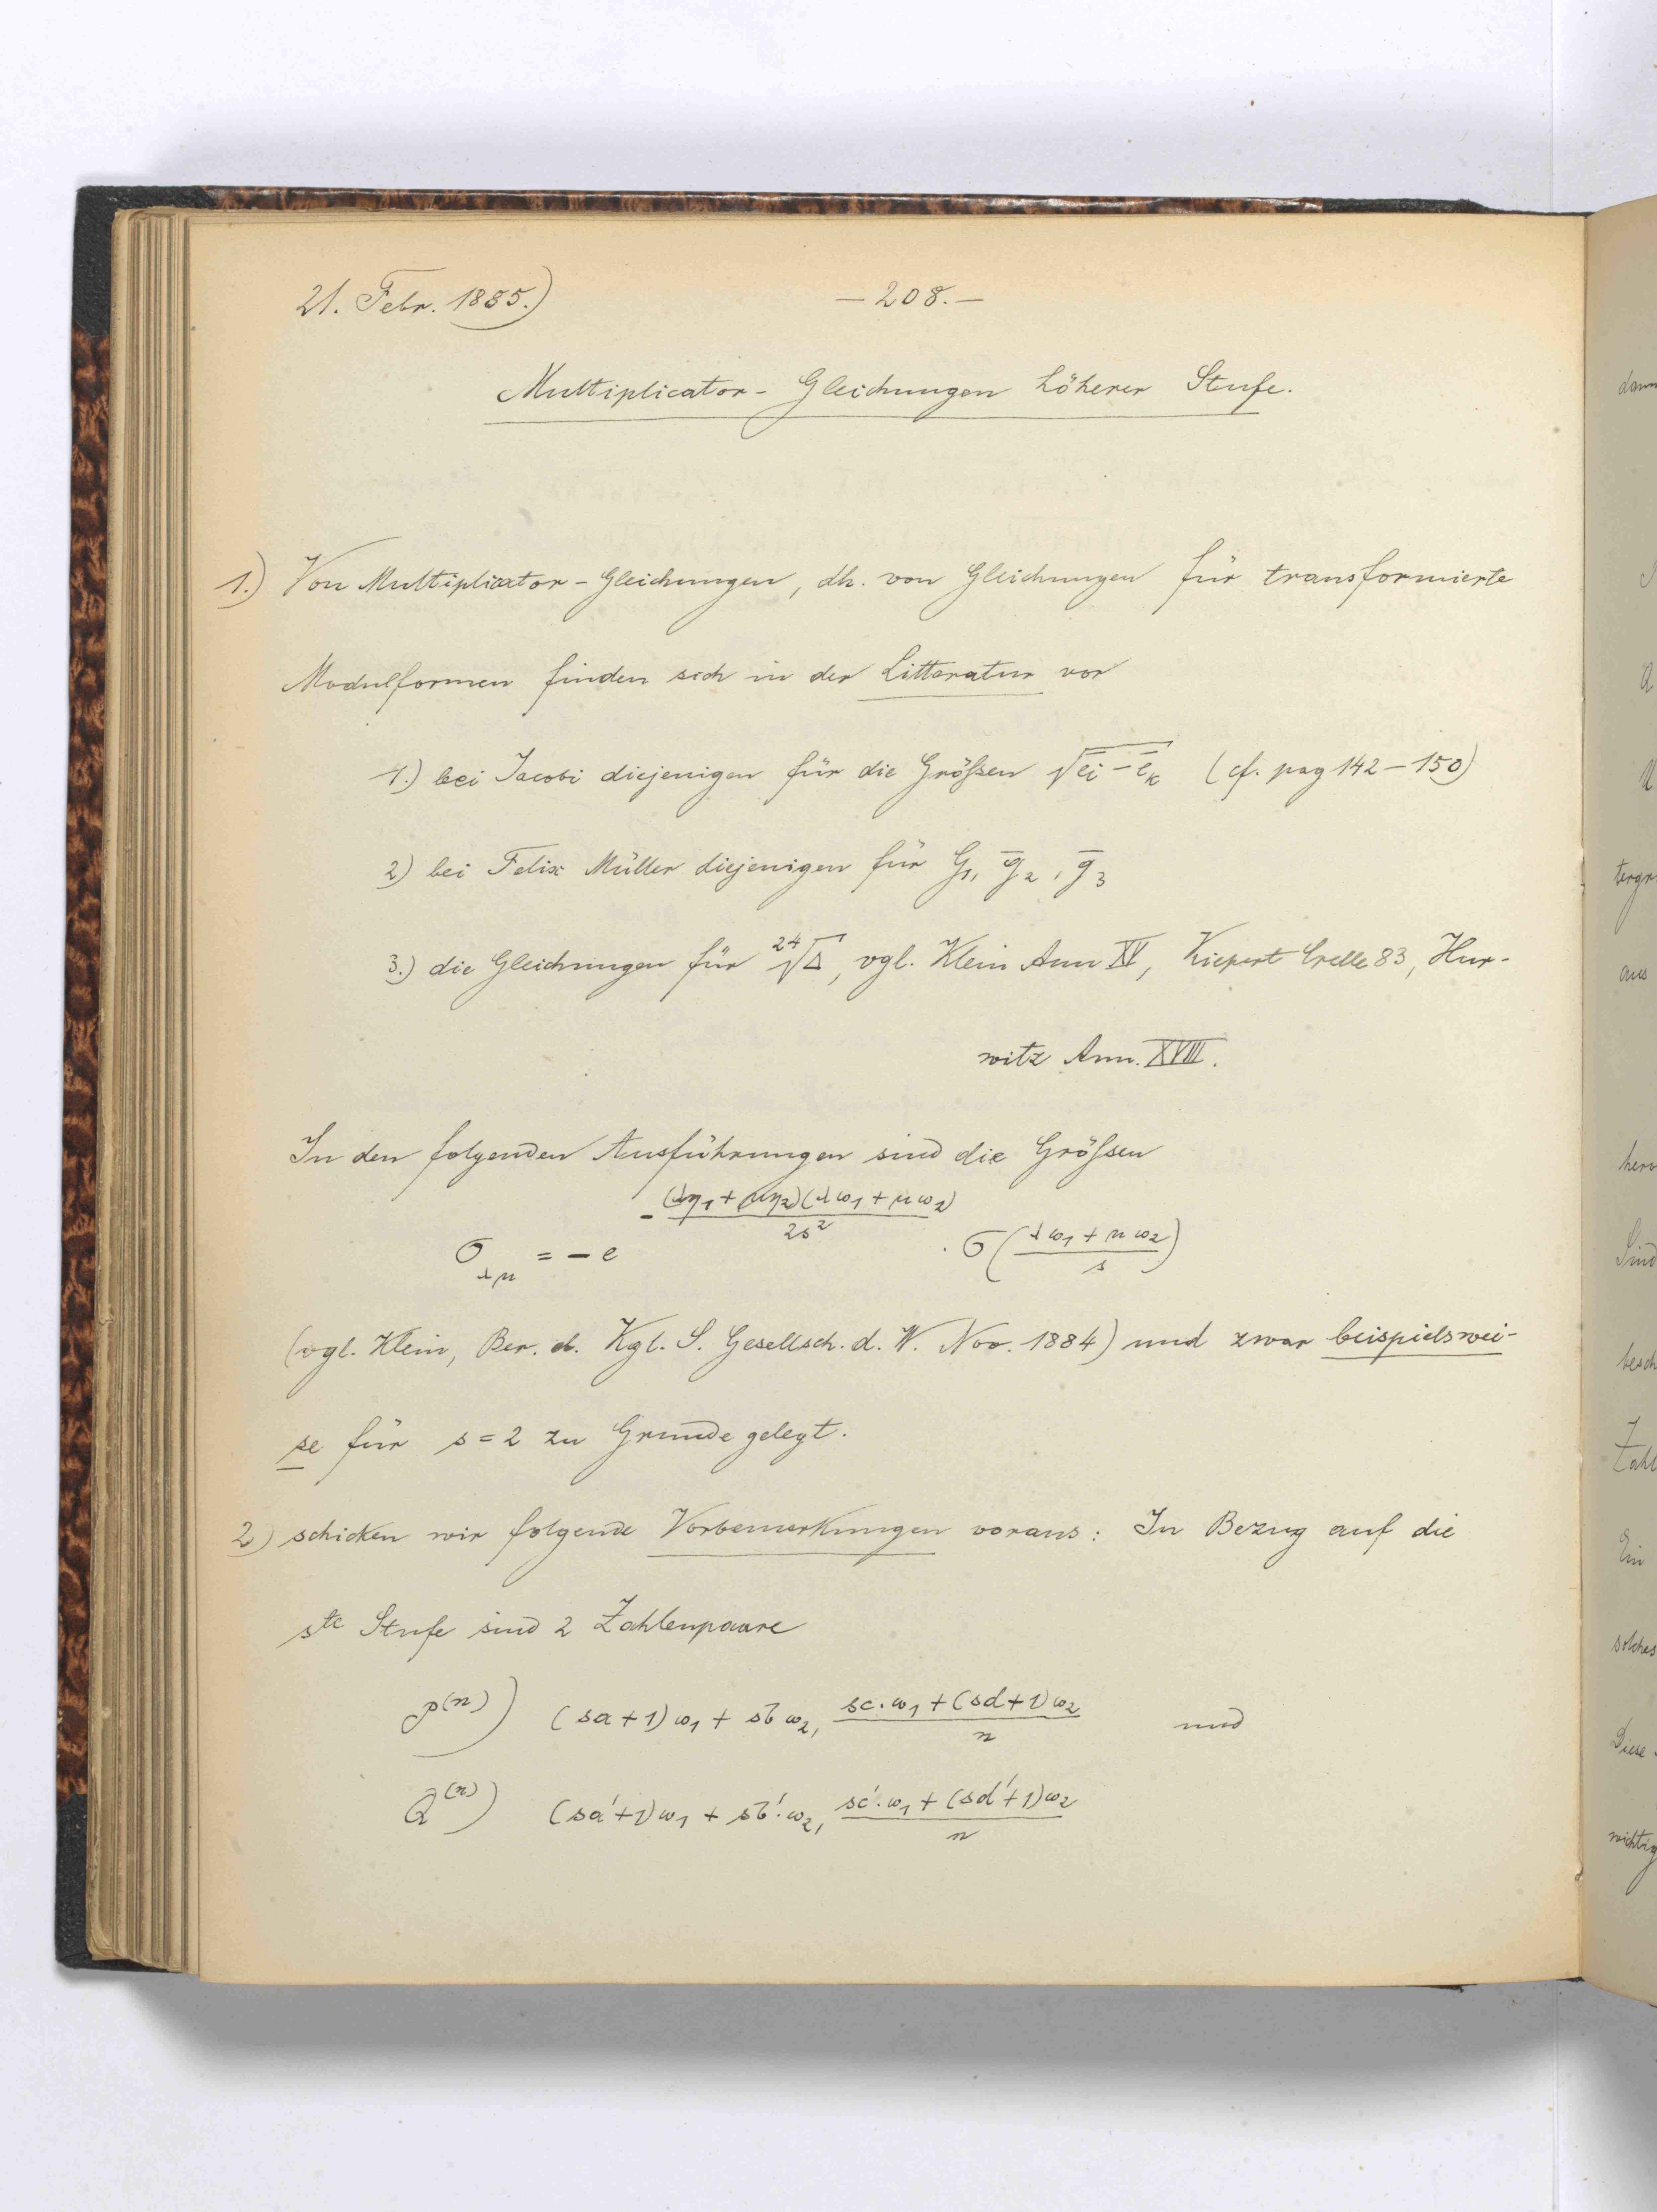 21. Febr. 1885.)
— 208. —
Multiplicator-Gleichungen höherer Stufe.
1.) Von Multiplicator-Gleichungen, dh. von Gleichungen für transformierte
Modulformen finden sich in der Litteratur vor
1.) bei Jacobi diejenigen für die Größen √(e̅ᵢ − e̅ₖ) (cf. pag 142 — 150)
2) bei Felix Müller diejenigen für G₁, g̅₂, g̅₃
3.) die Gleichungen für ²⁴√Δ, vgl. Klein Ann XV, Kiepert Crelle 83, Hur-
witz Ann. XVIII.
In den folgenden Ausführungen sind die Größen
σ_λμ = − e^(−(λη₁ + μη₂)(λω₁ + μω₂)/2s²) · σ((λω₁ + μω₂)/s)
(vgl. Klein, Ber. d. Kgl. S. Gesellsch. d. W. Nov. 1884) und zwar beispielswei-
se für s = 2 zu Grunde gelegt.
2) schicken wir folgende Vorbemerkungen voraus: In Bezug auf die
sᵗᵉ Stufe sind 2 Zahlenpaare
P⁽ⁿ⁾) (sa + 1)ω₁ + sbω₂, (sc·ω₁ + (sd + 1)ω₂)/n und
Q⁽ⁿ⁾) (sa' + 1)ω₁ + sb'·ω₂, (sc'·ω₁ + (sd' + 1)ω₂)/n